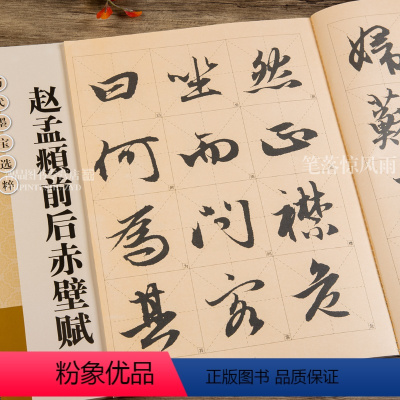 代墨宝选粹
赵孟頫前后赤壁赋
婦蘇
然正襟危
坐而问客
曰何為其
笔落惊风雨
粉象优品
官方优选 品质保障